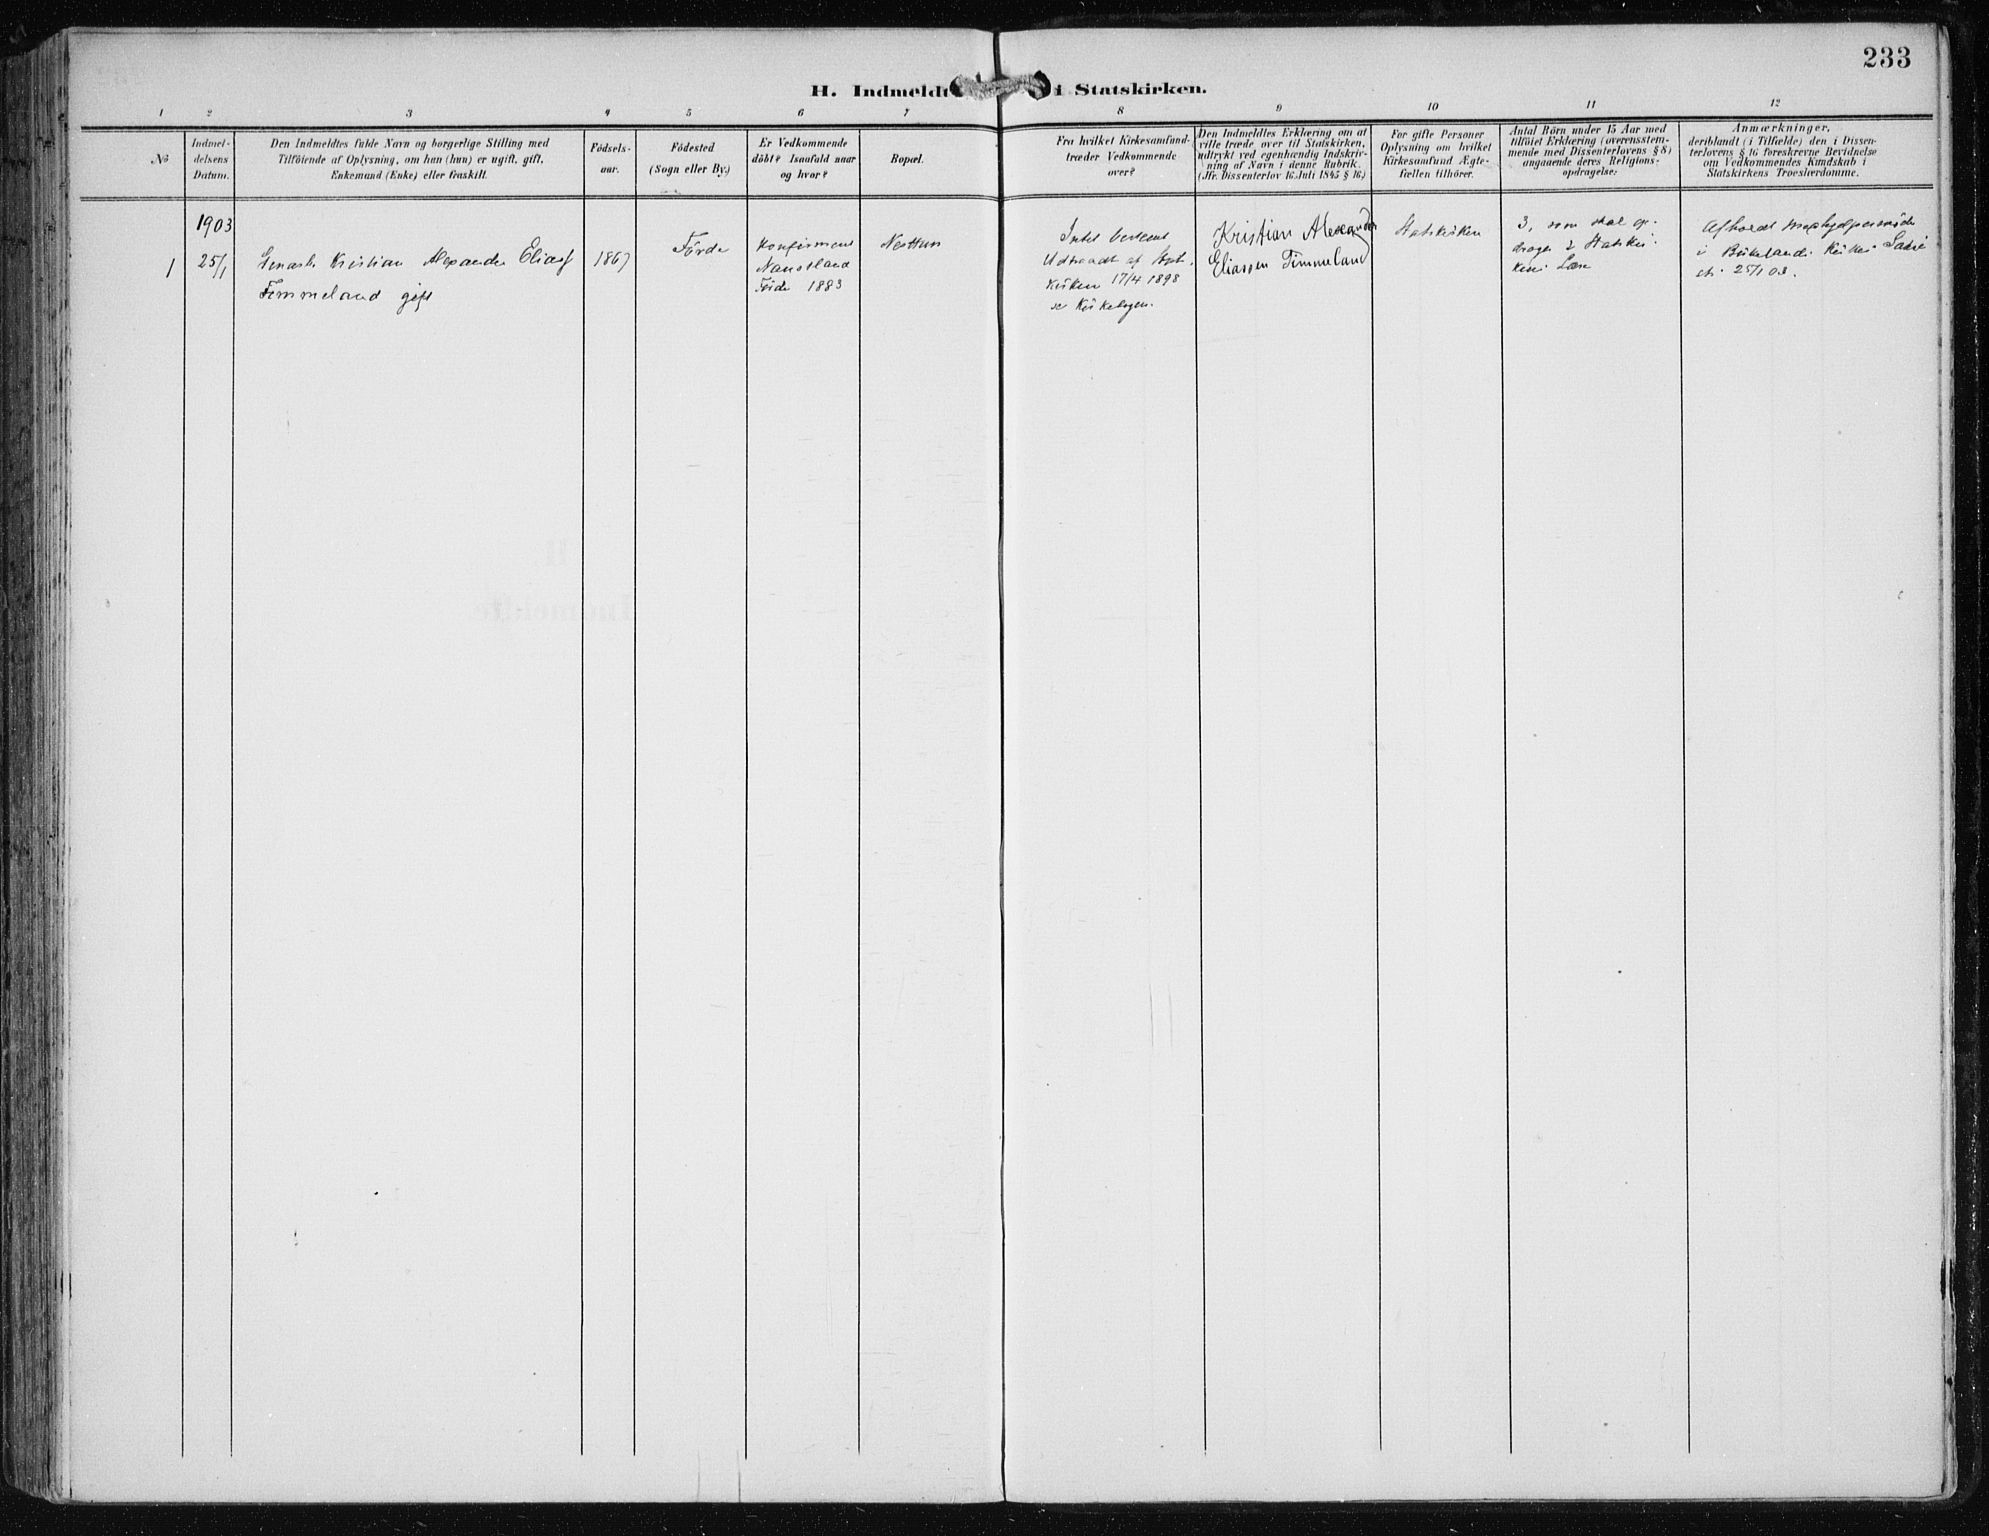 233
H. Indmeldt i Statskirken.
1 2 3 4 5 6 7 8 9 10 11 12
No
Indmel-
delsens
Datum.
Den Indmeldtes fulde Navn og borgerlige Stilling med
Tilföiende af Oplysning, om han (hun) er ugift, gift,
Enkemand (Enke) eller fraskilt.
Födsels-
aar.
Födested
(Sogn eller By.)
Er Vedkommende
döbt? Isaafald naar
og hvor?
Bopæl.
Fra hvilket Kirkesamfund
træder Vedkommende
over?
Den Indmeldtes Erklæring om at
ville træde over til Statskirken,
udtrykt ved egenhændig Indskriv-
ning af Navn i denne Rubrik.
(Jfr. Dissenterlov 16 Juli 1845 § 16.)
For gifte Personer
Oplysning om hvilket
Kirkesamfund Ægte-
fællen tilhörer.
Antal Börn under 15 Aar med
tilföiet Erklæring (overensstem-
mende med Dissenterlovens § 8)
angaaende deres Religions-
opdragelse:
Anmærkninger,
deriblandt (i Tilfælde) den i Dissen-
terlovens § 16 foreskrevne Bevidnelse
om Vedkommendes Kundskab i
Statskirkens Troeslærdomme.
1903
1
25/1
Kristian Alexander Eliass
Timmeland gift
1867
Förde
Konfirmeret
Naustdal
Förde 1883
Nesttun
Intet bestemt
Udtraadt af Stats-
kirken 17/4 1898
se Kirkebogen.
Kristian Alexander
Eliassen Timmeland
Statskirken
3, som skal op-
drages i Statskir-
kens Lære
Afholdt
i Birkelands Kirkes
25/1 03.